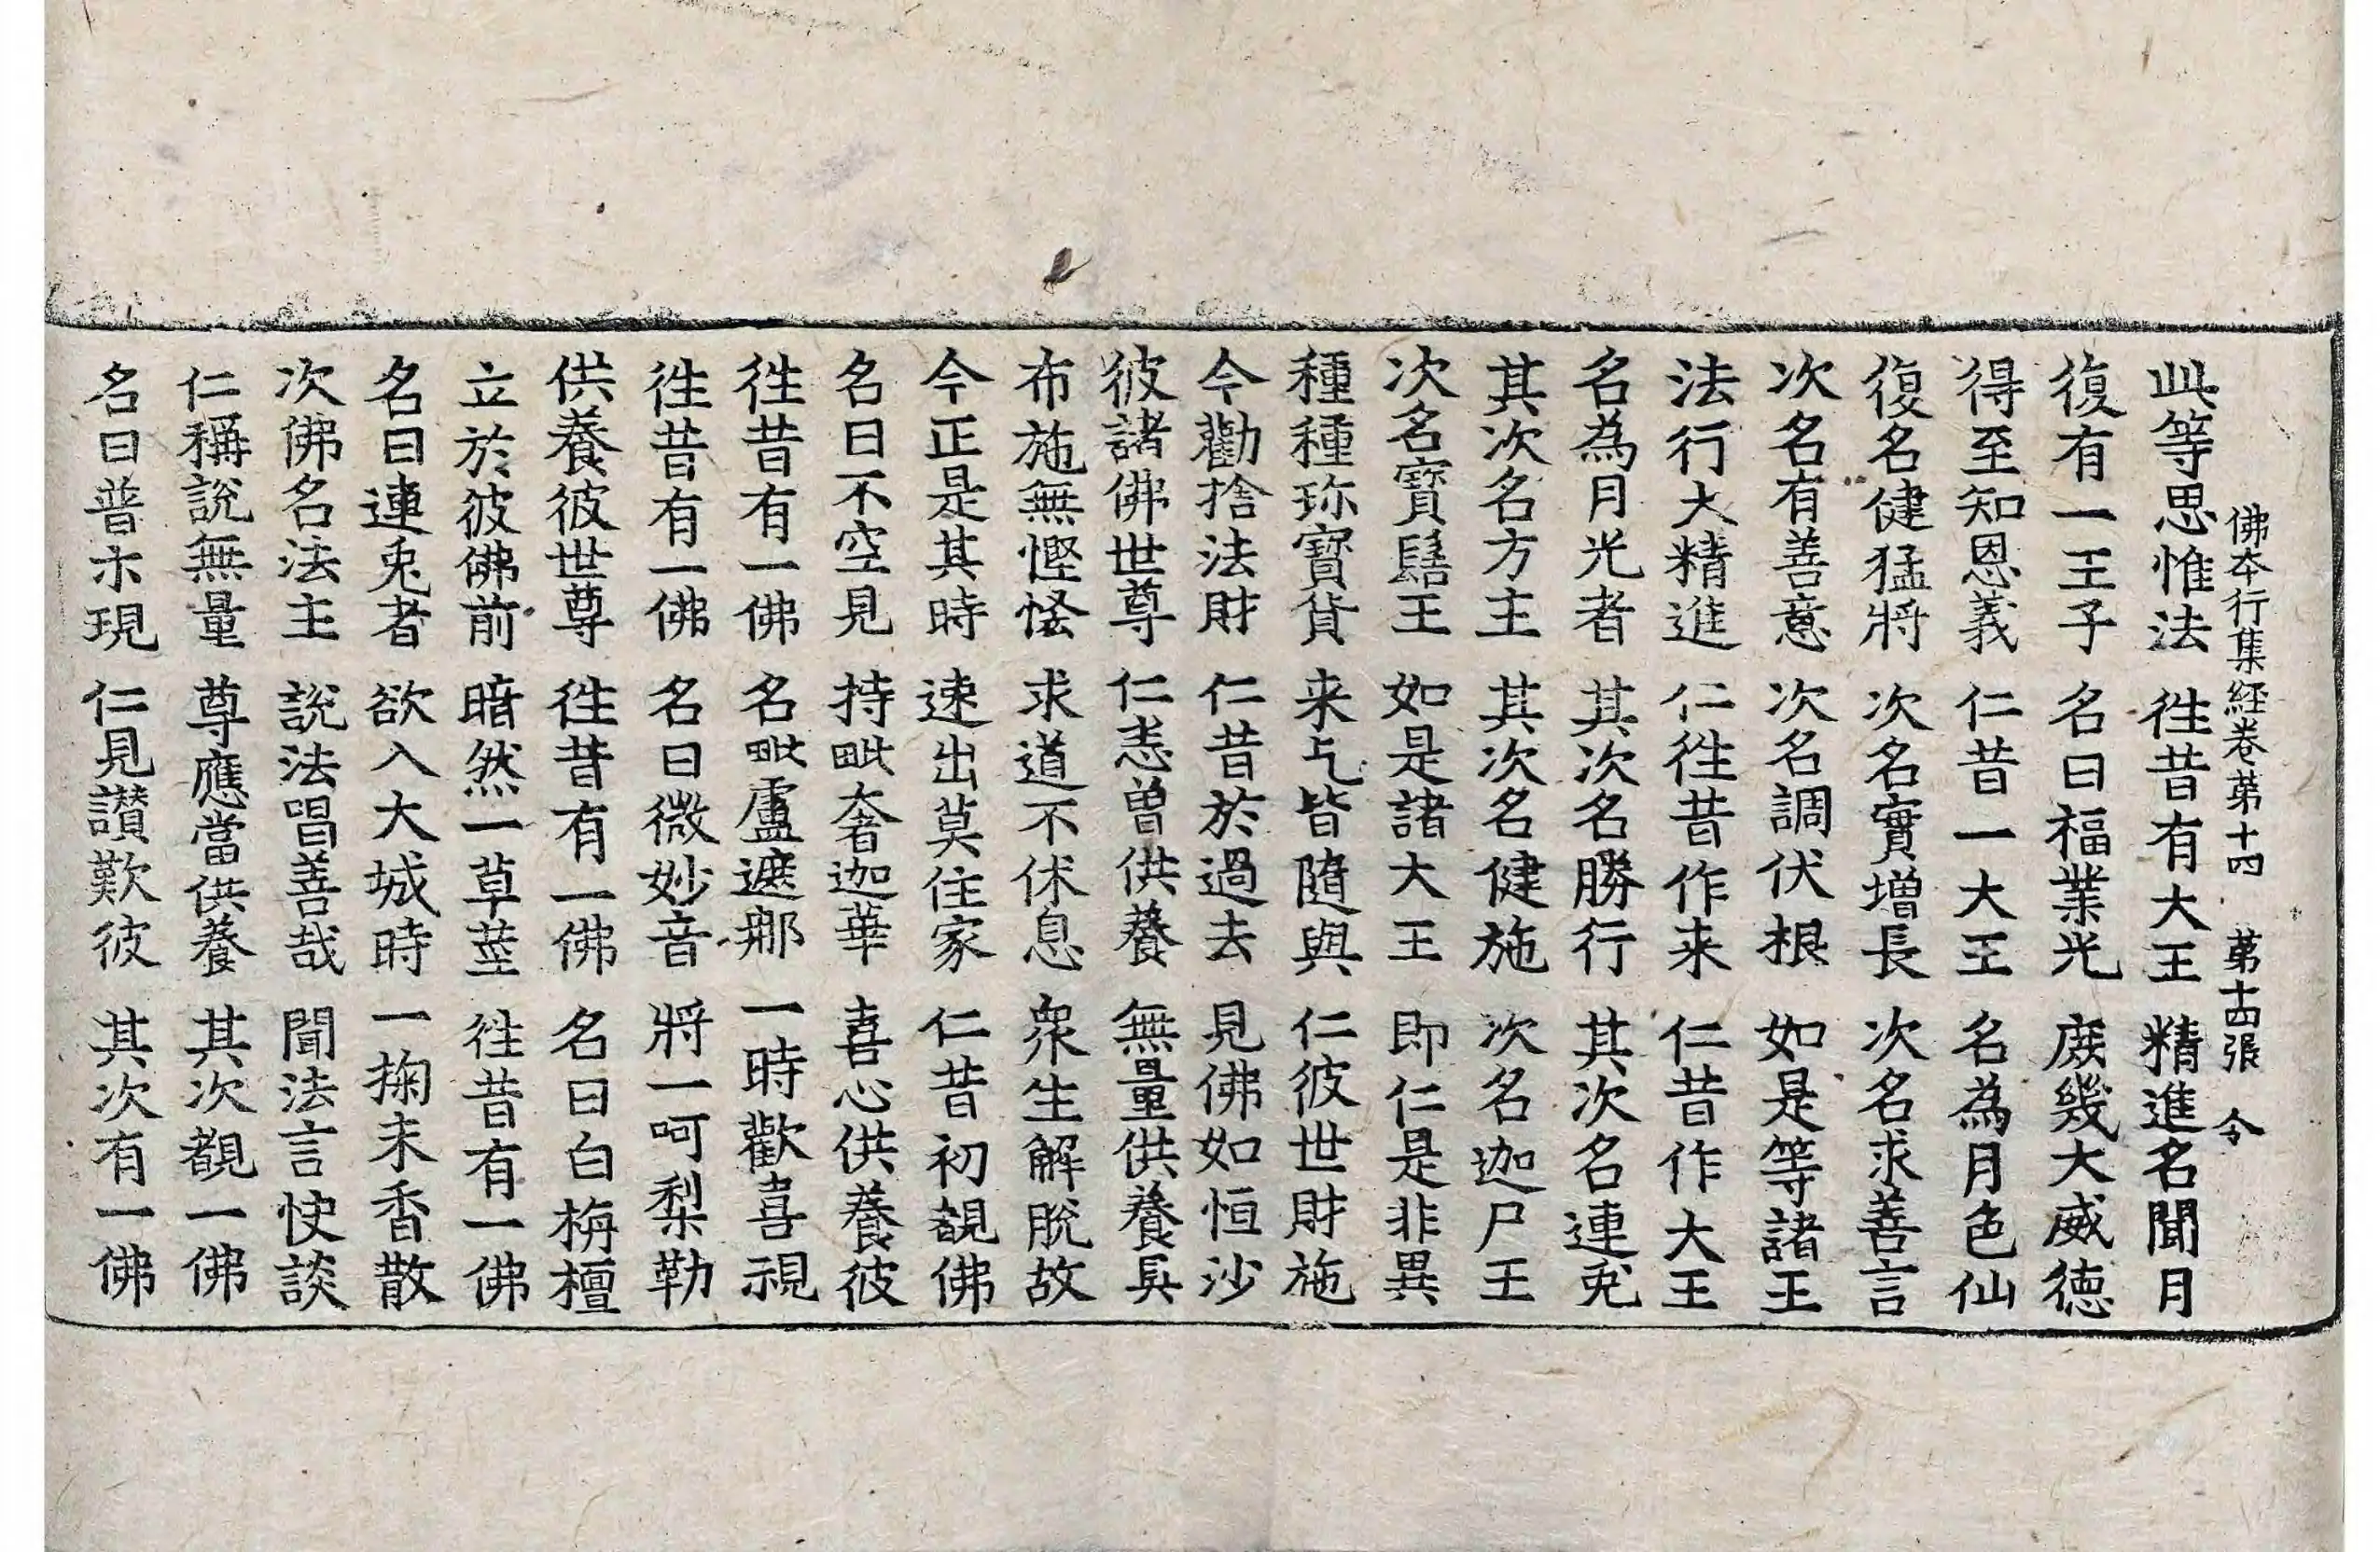 佛本行集經卷第十四 第十四張 令
此等思惟法 徃昔有大王 精進名聞月
復有一王子 名曰福業光 庻幾大威德
得至知恩義 仁昔一大王 名為月色仙
復名健猛將 次名實增長 次名求善言
次名有善意 次名調伏根 如是等諸王
法行大精進 仁徃昔作来 仁昔作大王
名為月光者 其次名勝行 其次名連兎
其次名方主 其次名健施 次名迦尸王
次名寶髻王 如是諸大王 即仁是非異
種種珎寶貨 来乞皆隨與 仁彼世財施
今勸捨法財 仁昔於過去 見佛如恒沙
彼諸佛世尊 仁悉曾供養 無量供養具
布施無慳悋 求道不休息 衆生解脫故
今正是其時 速出莫住家 仁昔初覩佛
名曰不空見 持毗奢迦華 喜心供養彼
徃昔有一佛 名毗盧遮那 一時歡喜視
徃昔有一佛 名曰微妙音 將一呵梨勒
供養彼世尊 徃昔有一佛 名曰白栴檀
立於彼佛前 暗然一草莖 徃昔有一佛
名曰連兎者 欲入大城時 一掬末香散
次佛名法主 說法唱善哉 聞法言快談
仁稱說無量 尊應當供養 其次覩一佛
名曰普示現 仁見讃歎彼 其次有一佛